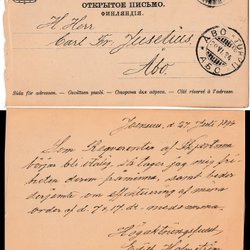 ОТКРЫТОЕ ПИСЬМО.
ФИНЛЯНДІЯ.
H. Herr
Carl Fr. Juselius,
Åbo.
ABO TUR
АБО
Sida för adressen. — Osoitteen puoli. — Сторона для адреса. — Côté réservé à l'adresse.
Joensuu, d. 27 Juli 1894
Som Requirenter af Skjortorna
börja bli otålig, så tager jag mig fri-
heten derom påminna, samt beder
derjemte om effektuering af mina
order af d. 7 & 17 dt. med samma.
Högaktningsfullt